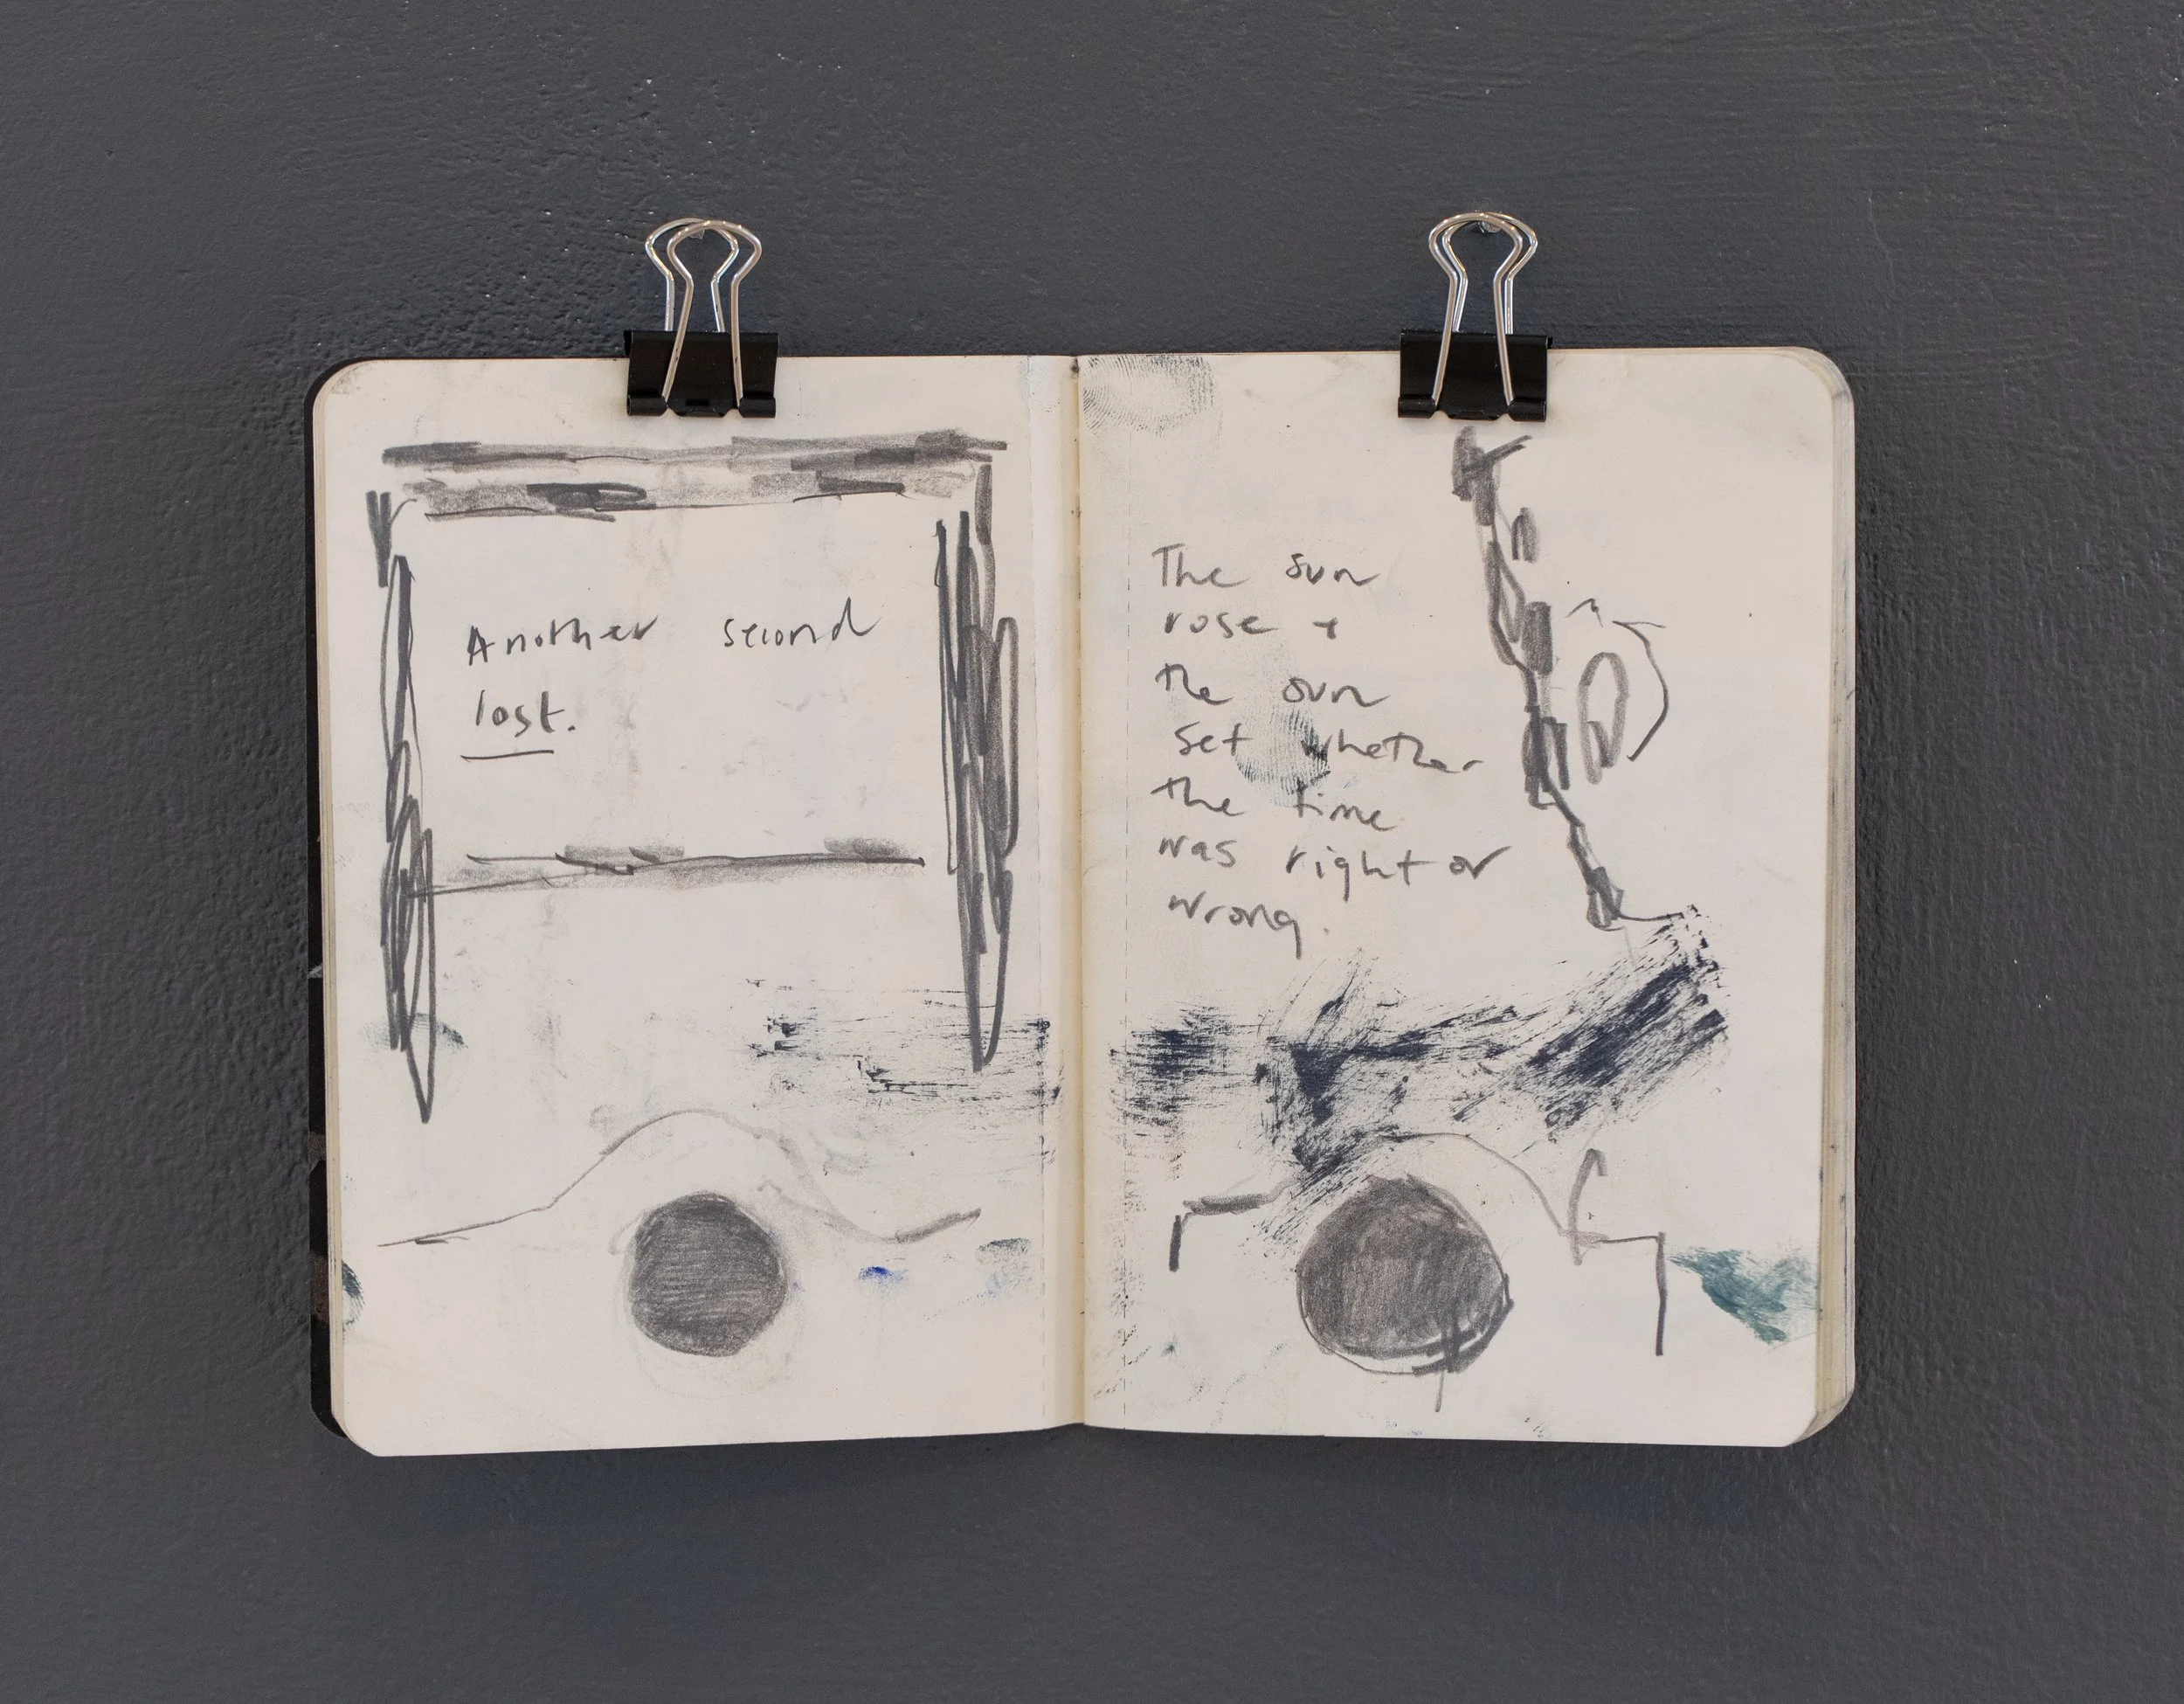 Another second
lost.
The sun
rose +
the sun
set whether
the time
was right or
wrong.